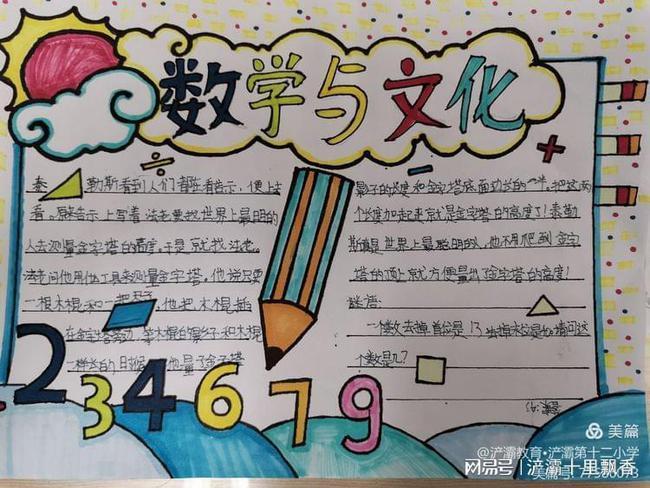 数学与文化
泰勒斯看到人们都在看告示，便上去
看。原来告示上写着法老要找世界上最聪明的
人去测量金字塔的高度。于是就找法老。
法老问他用什么工具来测量金字塔。他说只要
一根木棍和一把尺子，他把木棍插
在金字塔旁边，等木棍的影子和木棍
一样长的时候，他量了金字塔
影子的长度和金字塔底面边长的一半。把这两
个长度加起来就是金字塔的高度了！泰勒
斯真是世界上最聪明的人，他不用爬到金字
塔的顶上就方便量出了金字塔的高度！
谜语：
一个数去掉首位是13，去掉末位是40。请问这
个数是几？
2 3 4 6 7 7 9
美篇
@浐灞教育·浐灞第十二小学
网易号 | 浐灞十里飘香